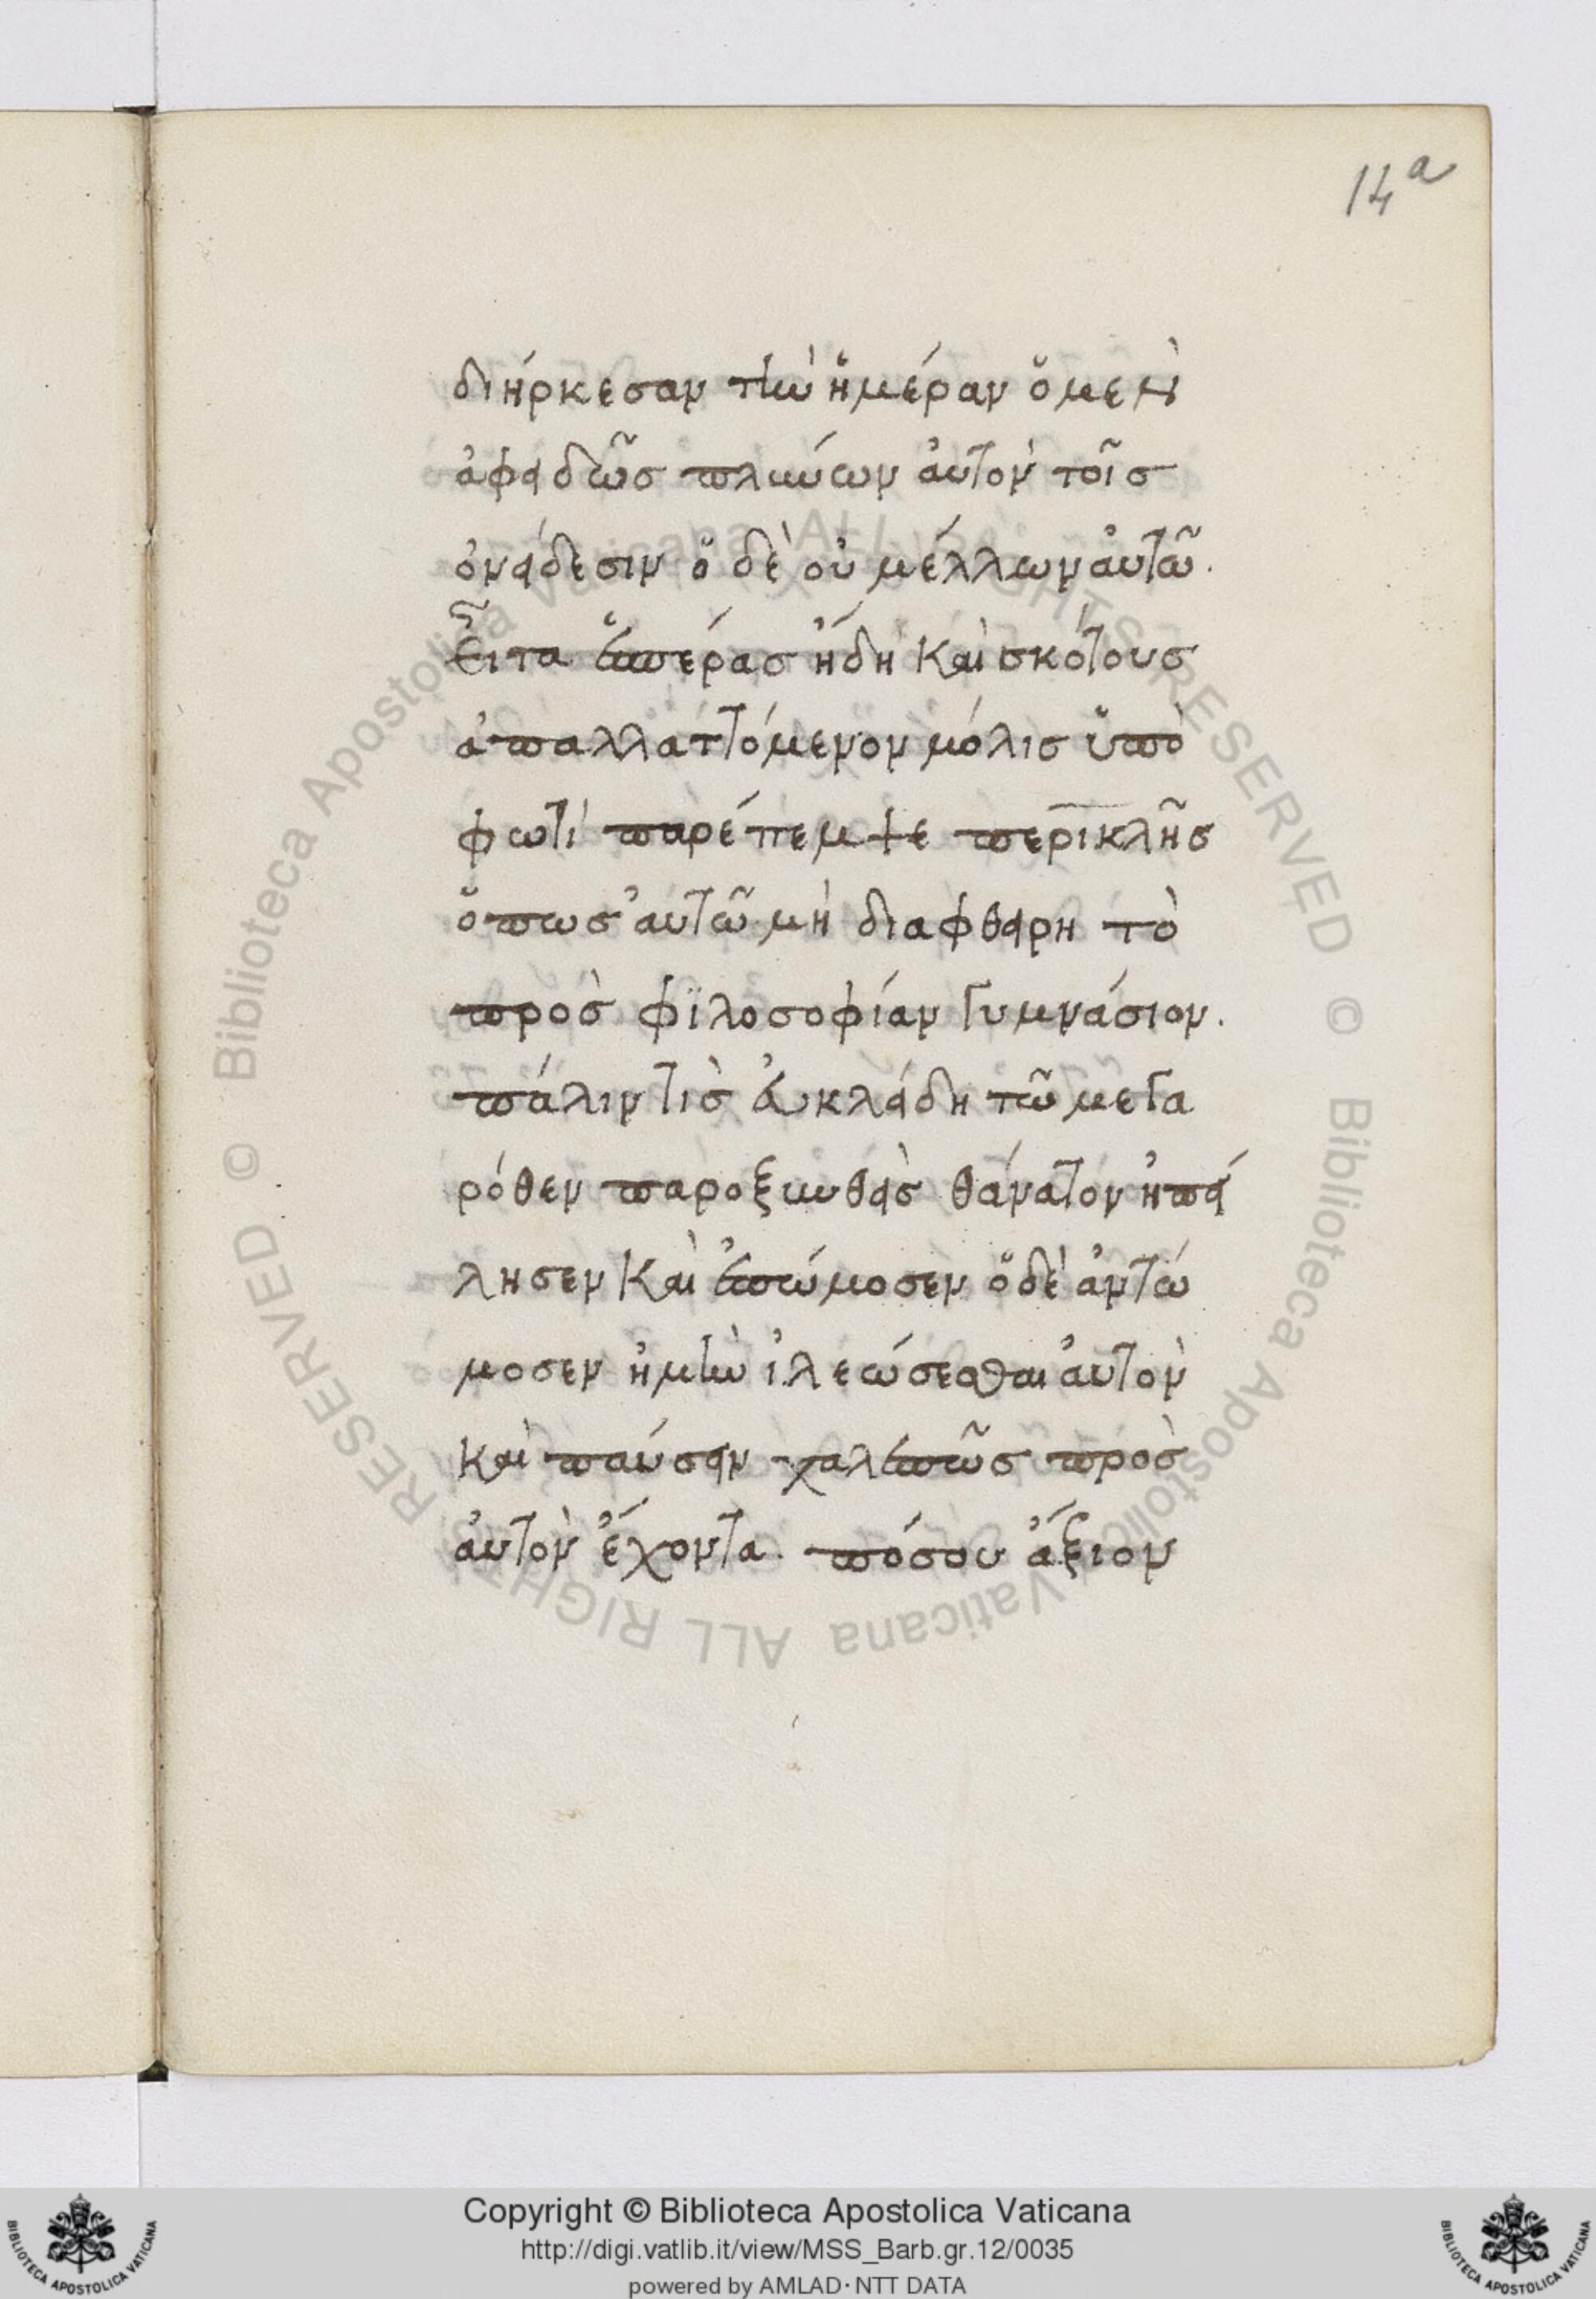 14a
διήρκεσαν τὴν ἡμέραν ὁ μὲν
ἀφειδῶς πλύνων αὐτὸν τοῖς
ὀνείδεσιν ὁ δὲ οὐ μέλλων αὐτῶ.
Εἶτα ἑσπέρας ἤδη καὶ σκότους
ἀπαλλαττόμενον μόλις ὑπὸ
φωτὶ παρέπεμψε περικλῆς
ὅπως αὐτῶ μὴ διαφθαρῆ τὸ
πρὸς φϊλοσοφίαν γυμνάσιον.
πάλιν τὶς εὐκλείδη τῶ μεγα
ρόθεν παροξυνθεὶς θάνατον ἠπεί
λησεν καὶ ἐπώμοσεν ὁ δὲ ἀντώ
μοσεν ἠμὴν ἰλεώσεσθαι αὐτὸν
καὶ παύσειν χαλεπῶς πρὸς
αὐτὸν ἔχοντα. πόσου ἄξιον
© Biblioteca Apostolica Vaticana ALL RIGHTS RESERVED
© Biblioteca Apostolica Vaticana ALL RIGHTS RESERVED
Copyright © Biblioteca Apostolica Vaticana
http://digi.vatlib.it/view/MSS_Barb.gr.12/0035
powered by AMLAD·NTT DATA
BIBLIOTECA APOSTOLICA VATICANA
BIBLIOTECA APOSTOLICA VATICANA